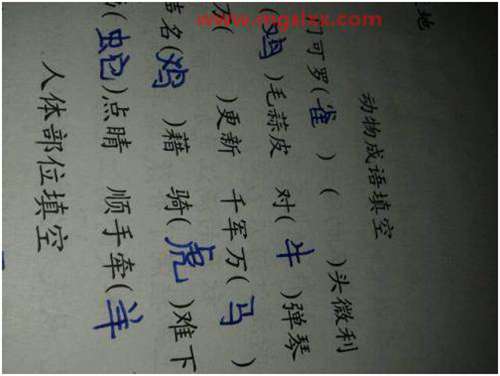 www.mgslxx.com
地
动物成语填空
可罗(雀) ( )头微利
(鸡)毛蒜皮 对(牛)弹琴
万( )更新 千军万(马)
名(鸡)藉 骑(虎)难下
(蛇)点睛 顺手牵(羊)
人体部位填空